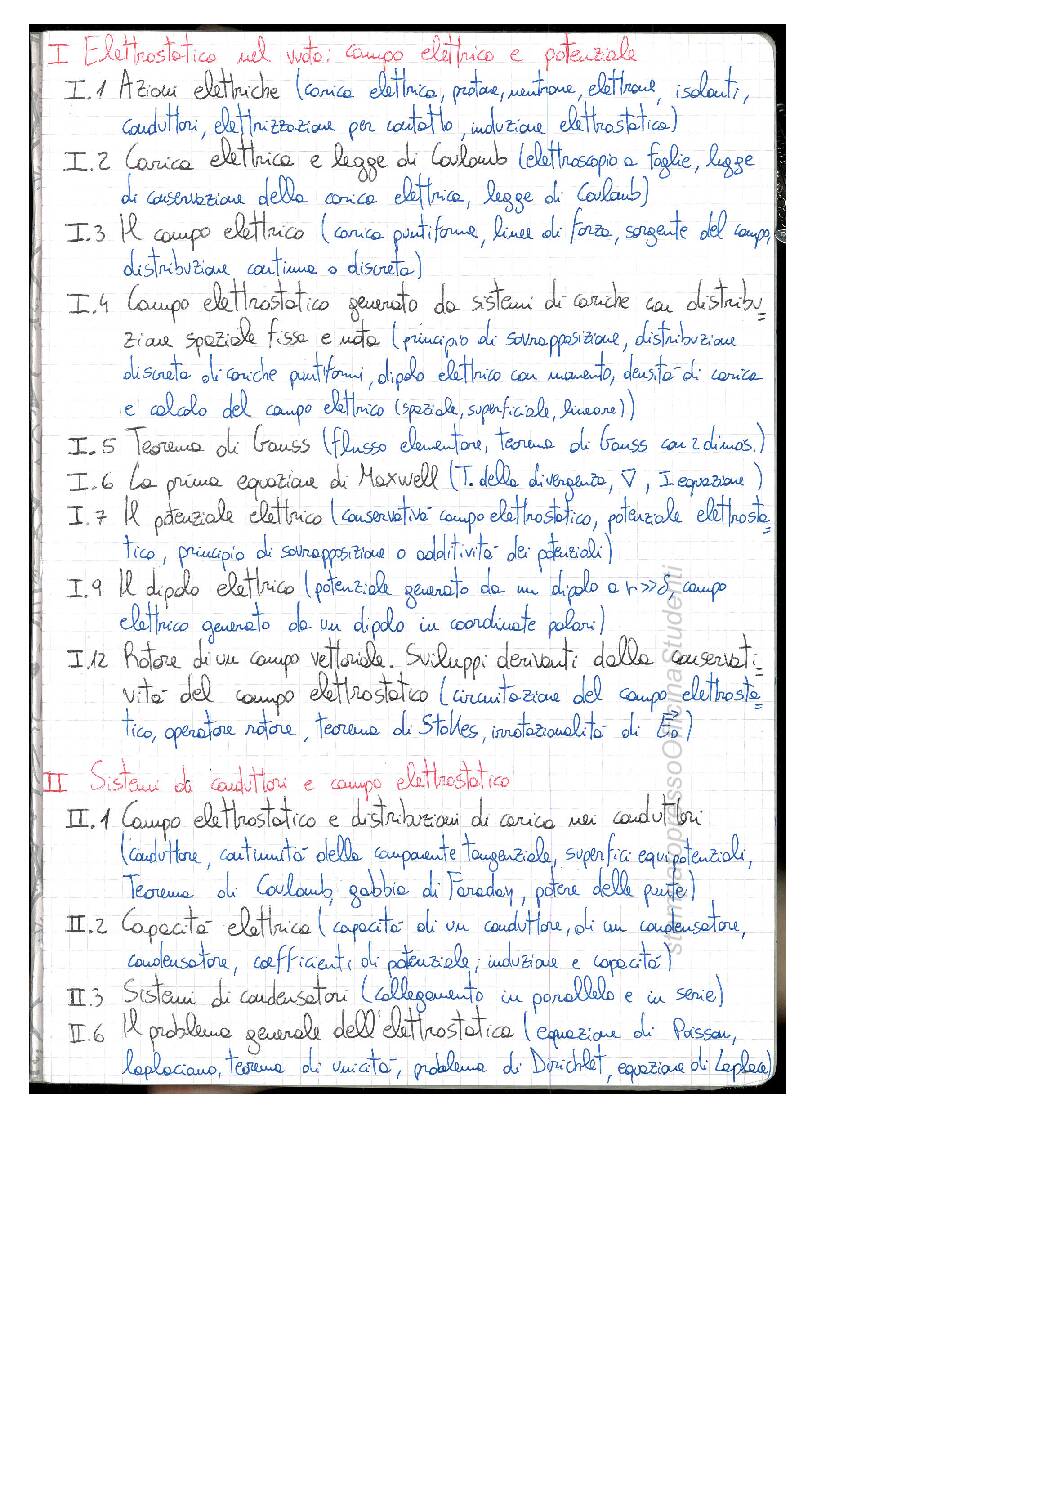 I Elettrostatica nel vuoto: campo elettrico e potenziale
I.1 Azioni elettriche (carica elettrica, protone, neutrone, elettrone, isolanti,
conduttori, elettrizzazione per contatto, induzione elettrostatica)
I.2 Carica elettrica e legge di Coulomb (elettroscopio a foglie, legge
di conservazione della carica elettrica, legge di Coulomb)
I.3 Il campo elettrico (carica puntiforme, linee di forza, sorgente del campo,
distribuzione continua o discreta)
I.4 Campo elettrostatico generato da sistemi di cariche con distribu=
zione spaziale fissa e nota (principio di sovrapposizione, distribuzione
discreta di cariche puntiformi, dipolo elettrico con momento, densità di carica
e calcolo del campo elettrico (spaziale, superficiale, lineare))
I.5 Teorema di Gauss (flusso elementare, teorema di Gauss con 2 dimos.)
I.6 La prima equazione di Maxwell (T. della divergenza, ∇, I equazione)
I.7 Il potenziale elettrico (conservatività campo elettrostatico, potenziale elettrosta=
tico, principio di sovrapposizione o additività dei potenziali)
I.9 Il dipolo elettrico (potenziale generato da un dipolo a r>>δ, campo
elettrico generato da un dipolo in coordinate polari)
I.12 Rotore di un campo vettoriale. Sviluppi derivanti dalla conservati=
vità del campo elettrostatico (circuitazione del campo elettrosta=
tico, operatore rotore, teorema di Stokes, irrotazionalità di E⃗₀)
II Sistemi di conduttori e campo elettrostatico
II.1 Campo elettrostatico e distribuzioni di carica nei conduttori
(conduttore, continuità della componente tangenziale, superfici equipotenziali,
Teorema di Coulomb, gabbia di Faraday, potere delle punte)
II.2 Capacità elettrica (capacità di un conduttore, di un condensatore,
condensatore, coefficienti di potenziale, induzione e capacità)
II.3 Sistemi di condensatori (collegamento in parallelo e in serie)
II.6 Il problema generale dell'elettrostatica (equazione di Poisson,
laplaciano, teorema di unicità, problema di Dirichlet, equazione di Laplace)